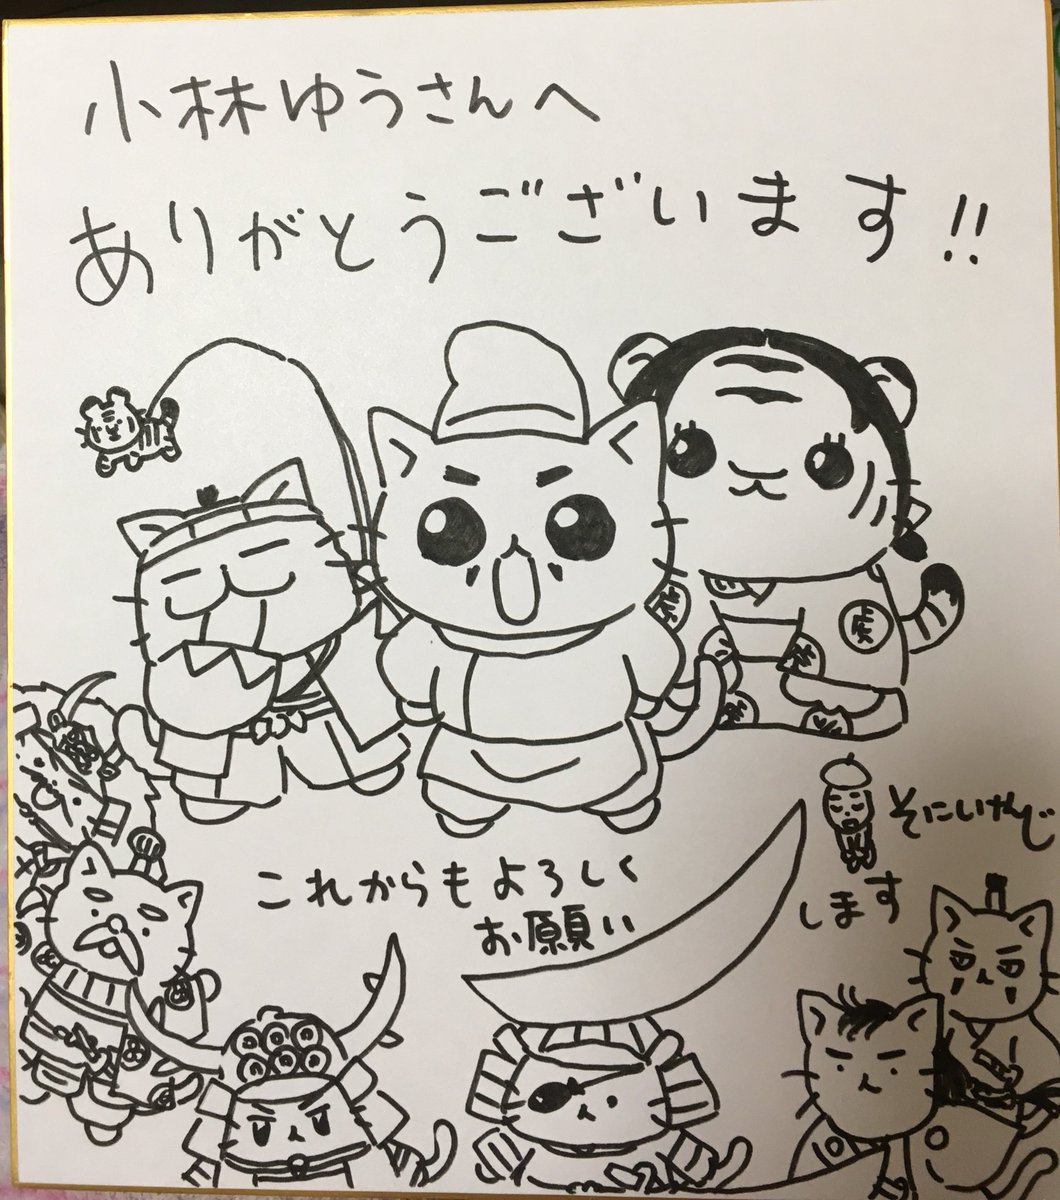 小林ゆうさんへ
ありがとうございます!!
虎
虎
そにしけんじ
これからもよろしく
お願い
します